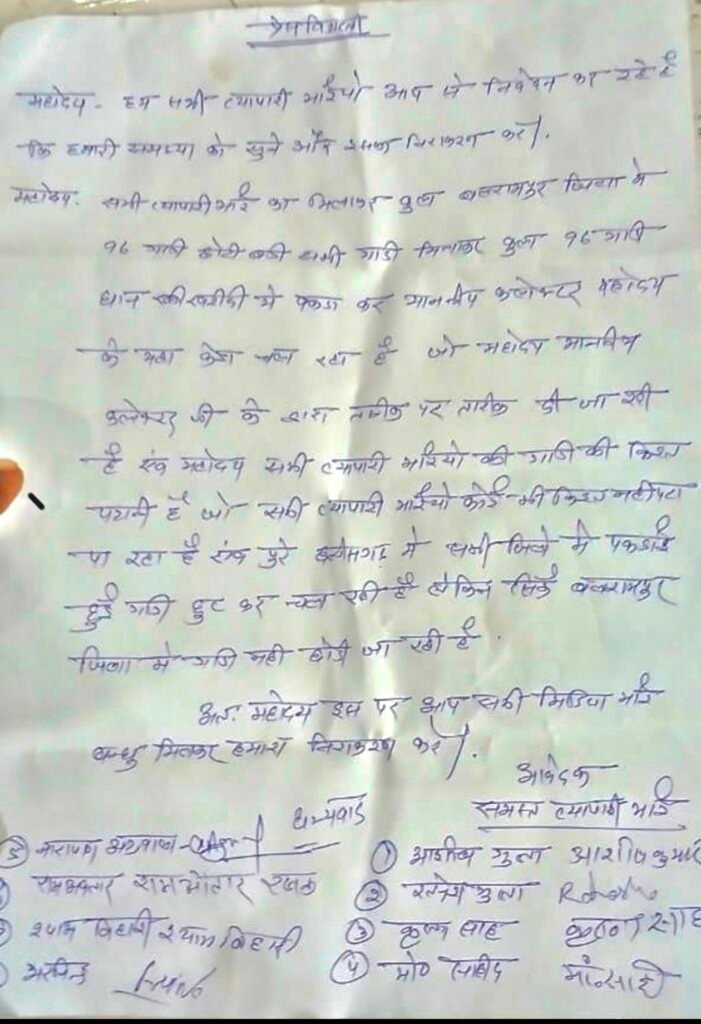 प्रेस विज्ञप्ती
महोदय - हम सभी व्यापारी भाईयो आप से निवेदन कर रहे है
कि हमारी समस्या को सुने और इसका निराकरण करे।
महोदय - सभी व्यापारी भाई का मिलाकर कुल बलरामपुर जिला मे
96 गाडी छोटी बडी सभी गाडी मिलाकर कुल 96 गाडी
धान खरीदी मे पकडा कर माननीय कलेक्टर महोदय
के यहा केश चल रहा है जो महोदय माननीय
कलेक्टर जी के द्वारा तारीक पर तारीक दी जा रही
है एवं महोदय सभी व्यापारी भाईयो की गाडि की किस्त
पटानी है जो सभी व्यापारी भाईयो कोई भी किस्त नही पटा
पा रहा है एवं पुरे छत्तीसगढ़ मे सभी जिले मे पकडाई
हुई गाडी छुट कर चल रही है लेकिन सिर्फ बलरामपुर
जिला मे गाडि नही छोडी जा रही है।
अतः महोदय इस पर आप सभी मिडिया भाई
बन्धु मिलकर हमारा निराकरण करे।
आवेदक
धन्यवाद समस्त व्यापारी भाई
① आशीष गुप्ता आशीष कुमार
② गुप्ता
③ कृष्णा साह कृष्णा साह
④ मो०
⑤ नारायण अग्रवाल
रामअवतार रामऔतार
श्याम बिहारी श्याम बिहारी
अरविन्द